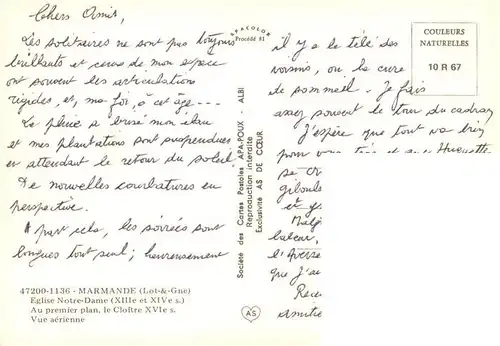 Chers Amis,
Les solitaires ne sont pas toujours
brillants et ceux de mon espèce
ont souvent les articulations
rigides, et, ma foi, à cet âge ---
La pluie a brisé mon élan
et mes plantations sont suspendues
en attendant le retour du soleil
De nouvelles courbatures en
perspective.
A part cela, les soirées sont
longues tout seul; heureusement
47200-1136 - MARMANDE (Lot-&-Gne)
Eglise Notre-Dame (XIIIe et XIVe s.)
Au premier plan, le Cloître XVIe s.
Vue aérienne
APACOLOR
Procédé 81
Société des Cartes Postales APA-POUX - ALBI
Reproduction interdite
Exclusivité AS DE CŒUR
AS
COULEURS
NATURELLES
10 R 67
il y a la télé des
voisins, ou la cure
de sommeil. Je fais
assez souvent le tour du cadran
J'espère que tout va bien
pour vous
et Huguette
se
giboulé
et
Malg
balcon,
l'Averse
que j'ai
Rece
amitié